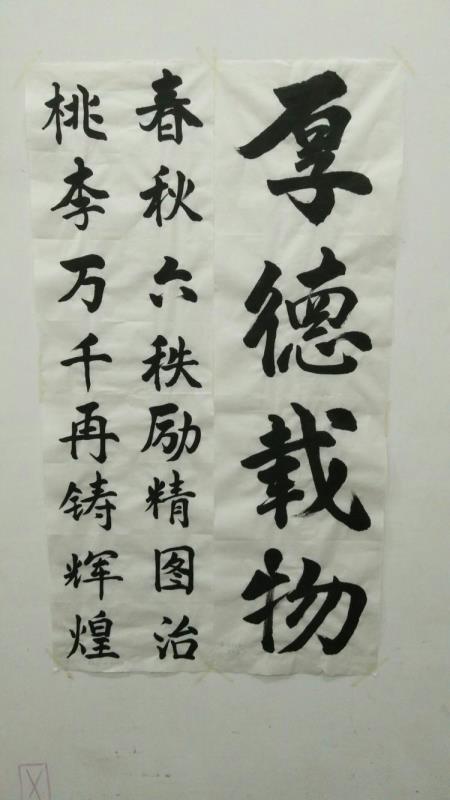 厚德载物
春秋六秩励精图治
桃李万千再铸辉煌